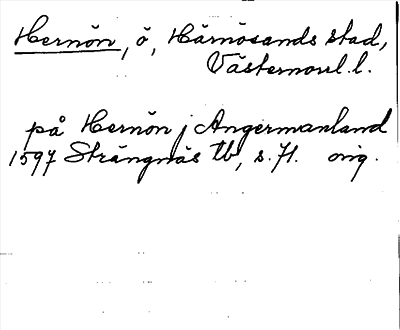 Hernön, ö, Härnösands stad,
Västernorrl. l.
på Hernön j Ångermanland
1597 Strängnäs tb, s. 71. orig.